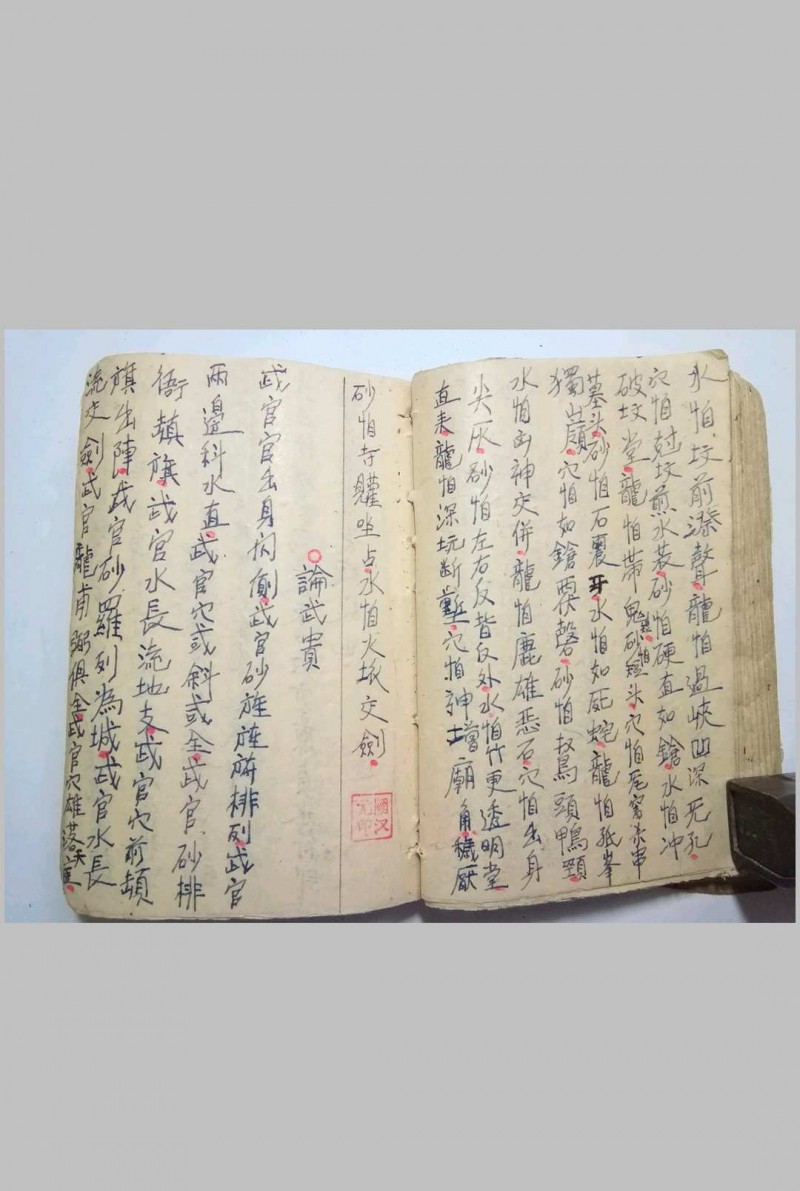 水怕坟前滲聲龍怕過峽凹深死孔
穴怕尅坟煎水裝砂怕硬直如鎗水怕冲
破坟堂龍怕帶鬼砂怕頭穴怕尾窩
墓头砂怕石裏牙水怕如死蛇龍怕孤峯
獨巔穴怕如鎗栗磬砂怕頭鴨頸
水怕凶神交併龍怕鹿雄恶石穴怕出身
尖砂怕左右反背反外水怕竹更透明堂
直来龍怕深坑断塹穴怕神壇廟角穢厭
砂怕寺坐占水怕火城交劍
國汉
論武貴
武官官出身閃側武官砂旌旌排列武官
兩邊科水直武官穴或斜或全武官砂排
衙旗武官水長流地支武官穴前頓
旗出陣武官砂羅列為城武官水長
流交劍武官龍甫弼俱全武官穴雄落天